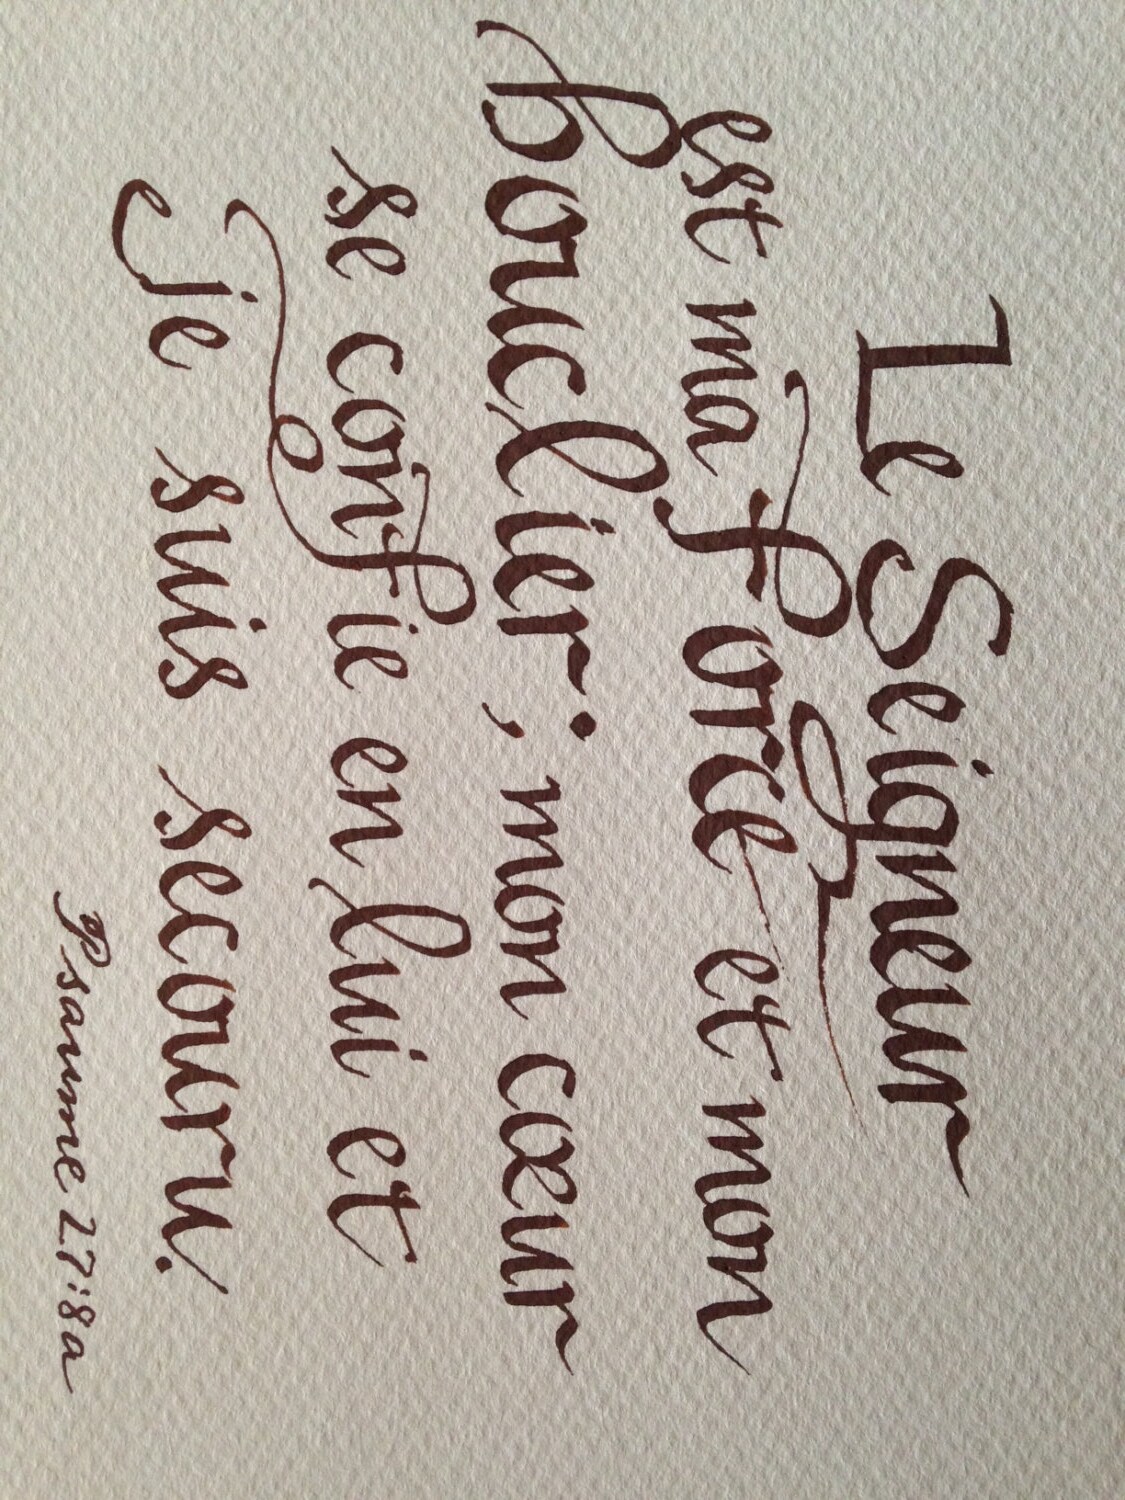 Le Seigneur
est ma force et mon
Bouclier ; mon cœur
se confie en lui et
je suis secouru.
Psaume 27:8a